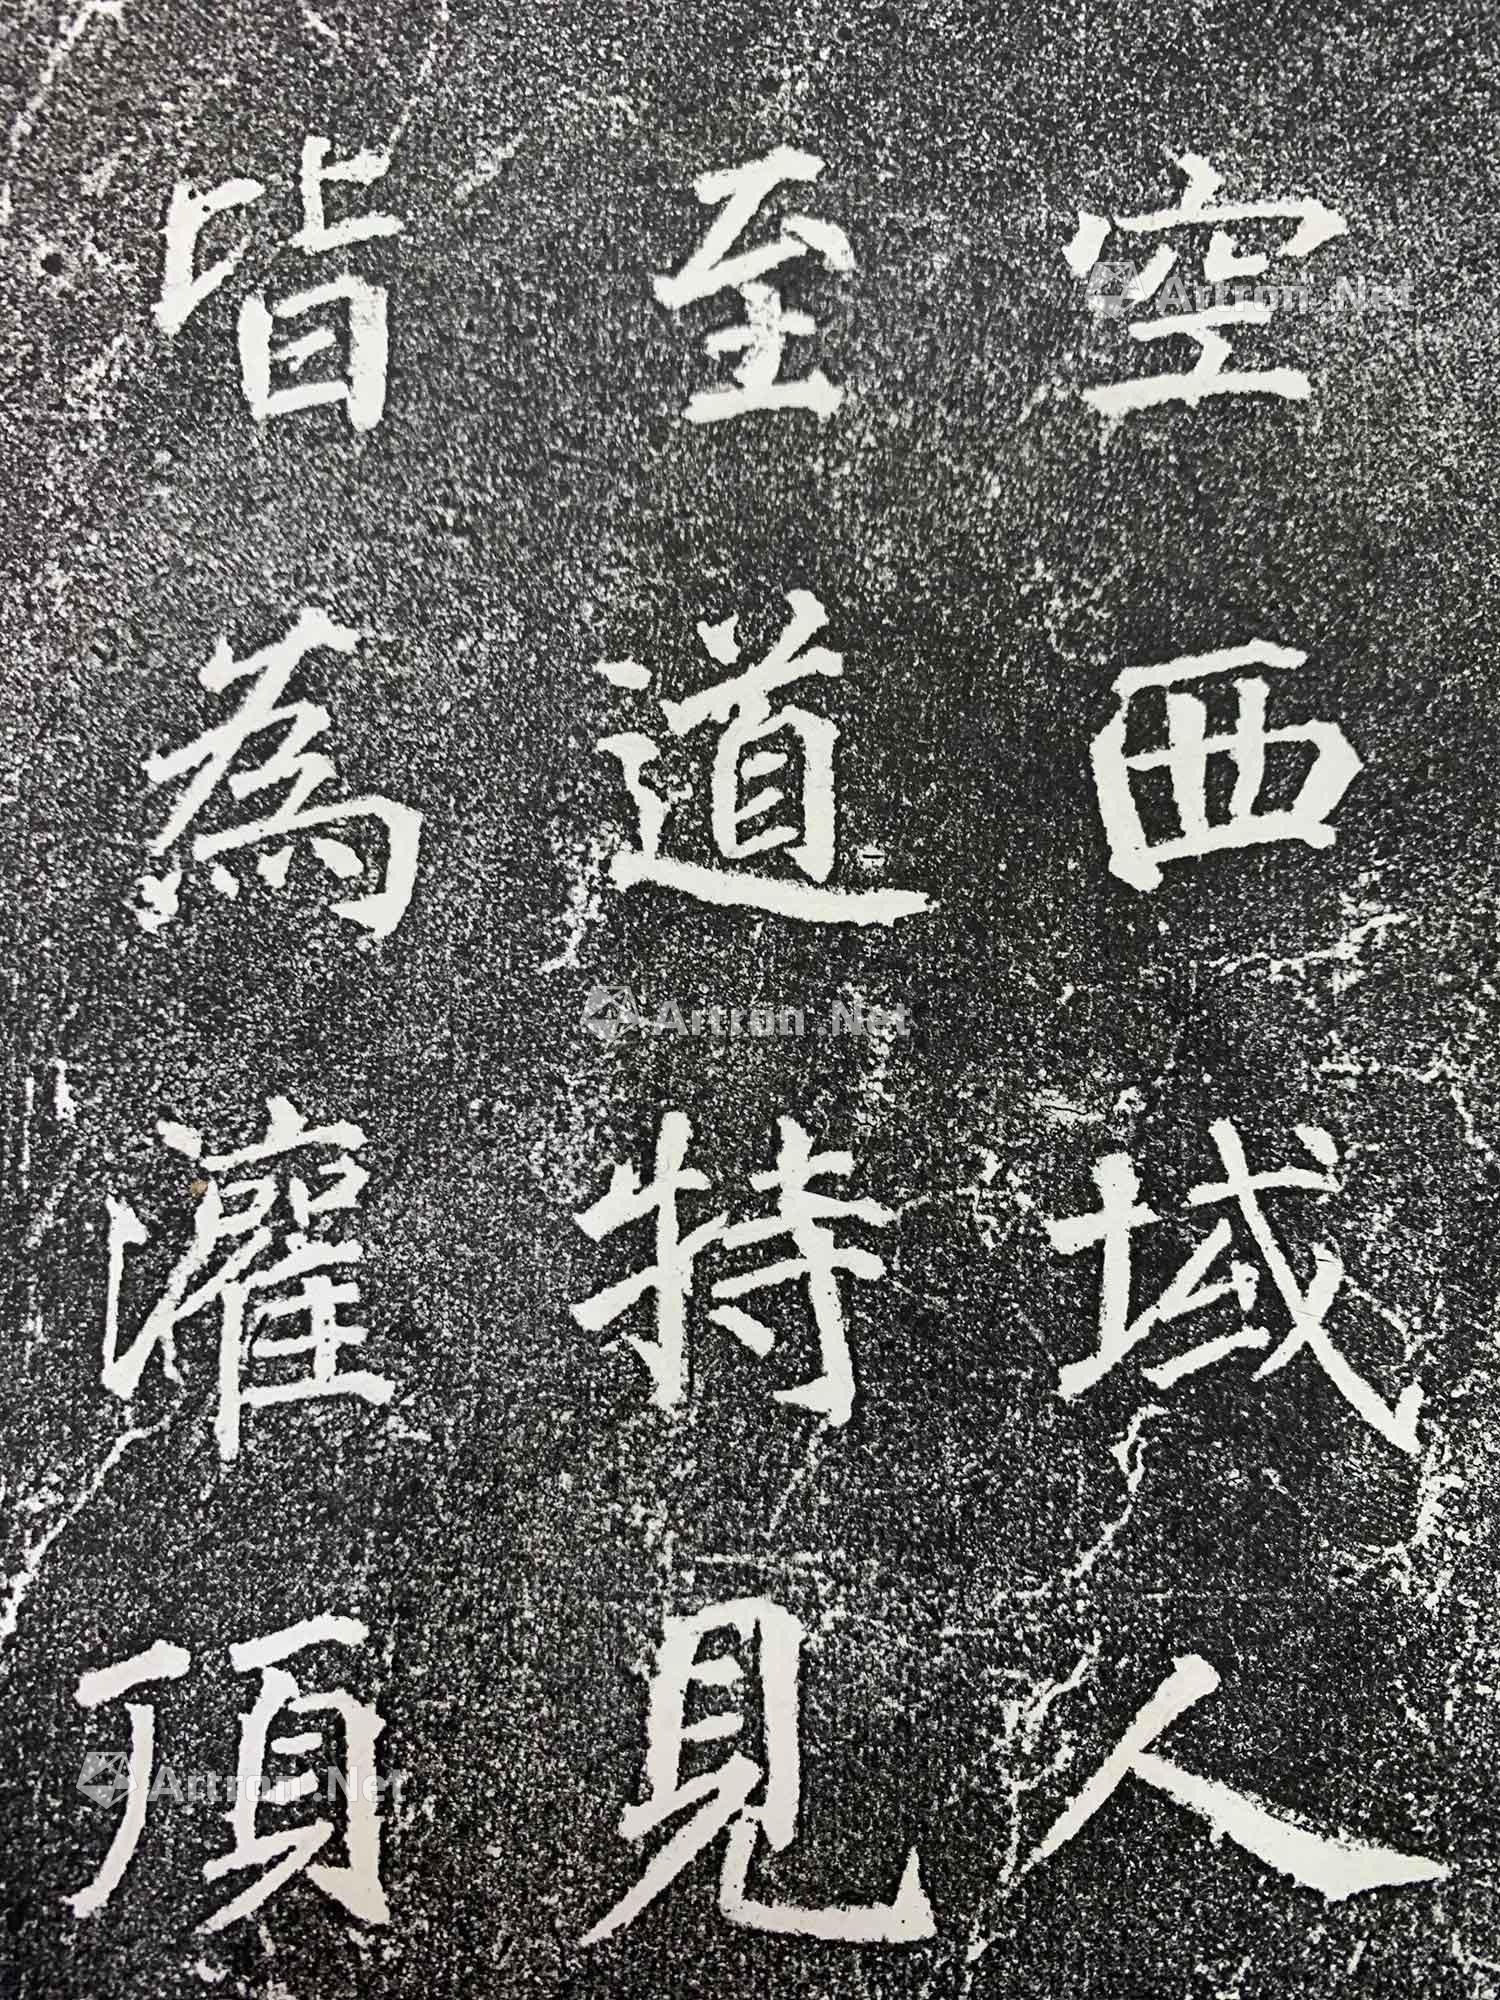 空西域人
至道特見
皆為灌頂
Artron.Net
Artron.Net
Artron.Net